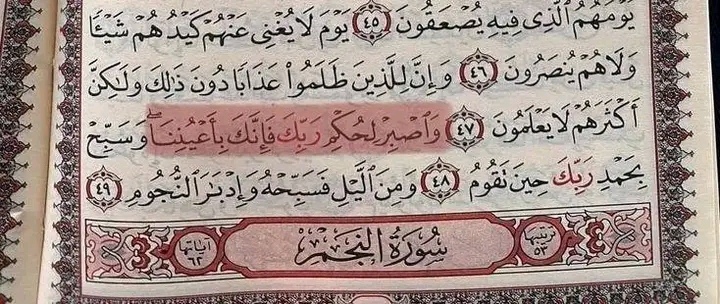 يَوْمَهُمُ ٱلَّذِى فِيهِ يُصْعَقُونَ ٤٥ يَوْمَ لَا يُغْنِى عَنْهُمْ كَيْدُهُمْ شَيْـًٔا
وَلَا هُمْ يُنصَرُونَ ٤٦ وَإِنَّ لِلَّذِينَ ظَلَمُوا۟ عَذَابًا دُونَ ذَٰلِكَ وَلَٰكِنَّ
أَكْثَرَهُمْ لَا يَعْلَمُونَ ٤٧ وَٱصْبِرْ لِحُكْمِ رَبِّكَ فَإِنَّكَ بِأَعْيُنِنَا ۖ وَسَبِّحْ
بِحَمْدِ رَبِّكَ حِينَ تَقُومُ ٤٨ وَمِنَ ٱلَّيْلِ فَسَبِّحْهُ وَإِدْبَٰرَ ٱلنُّجُومِ ٤٩
ترتيبها ٥٣ سُورَةُ النَّجْمِ آياتها ٦٢